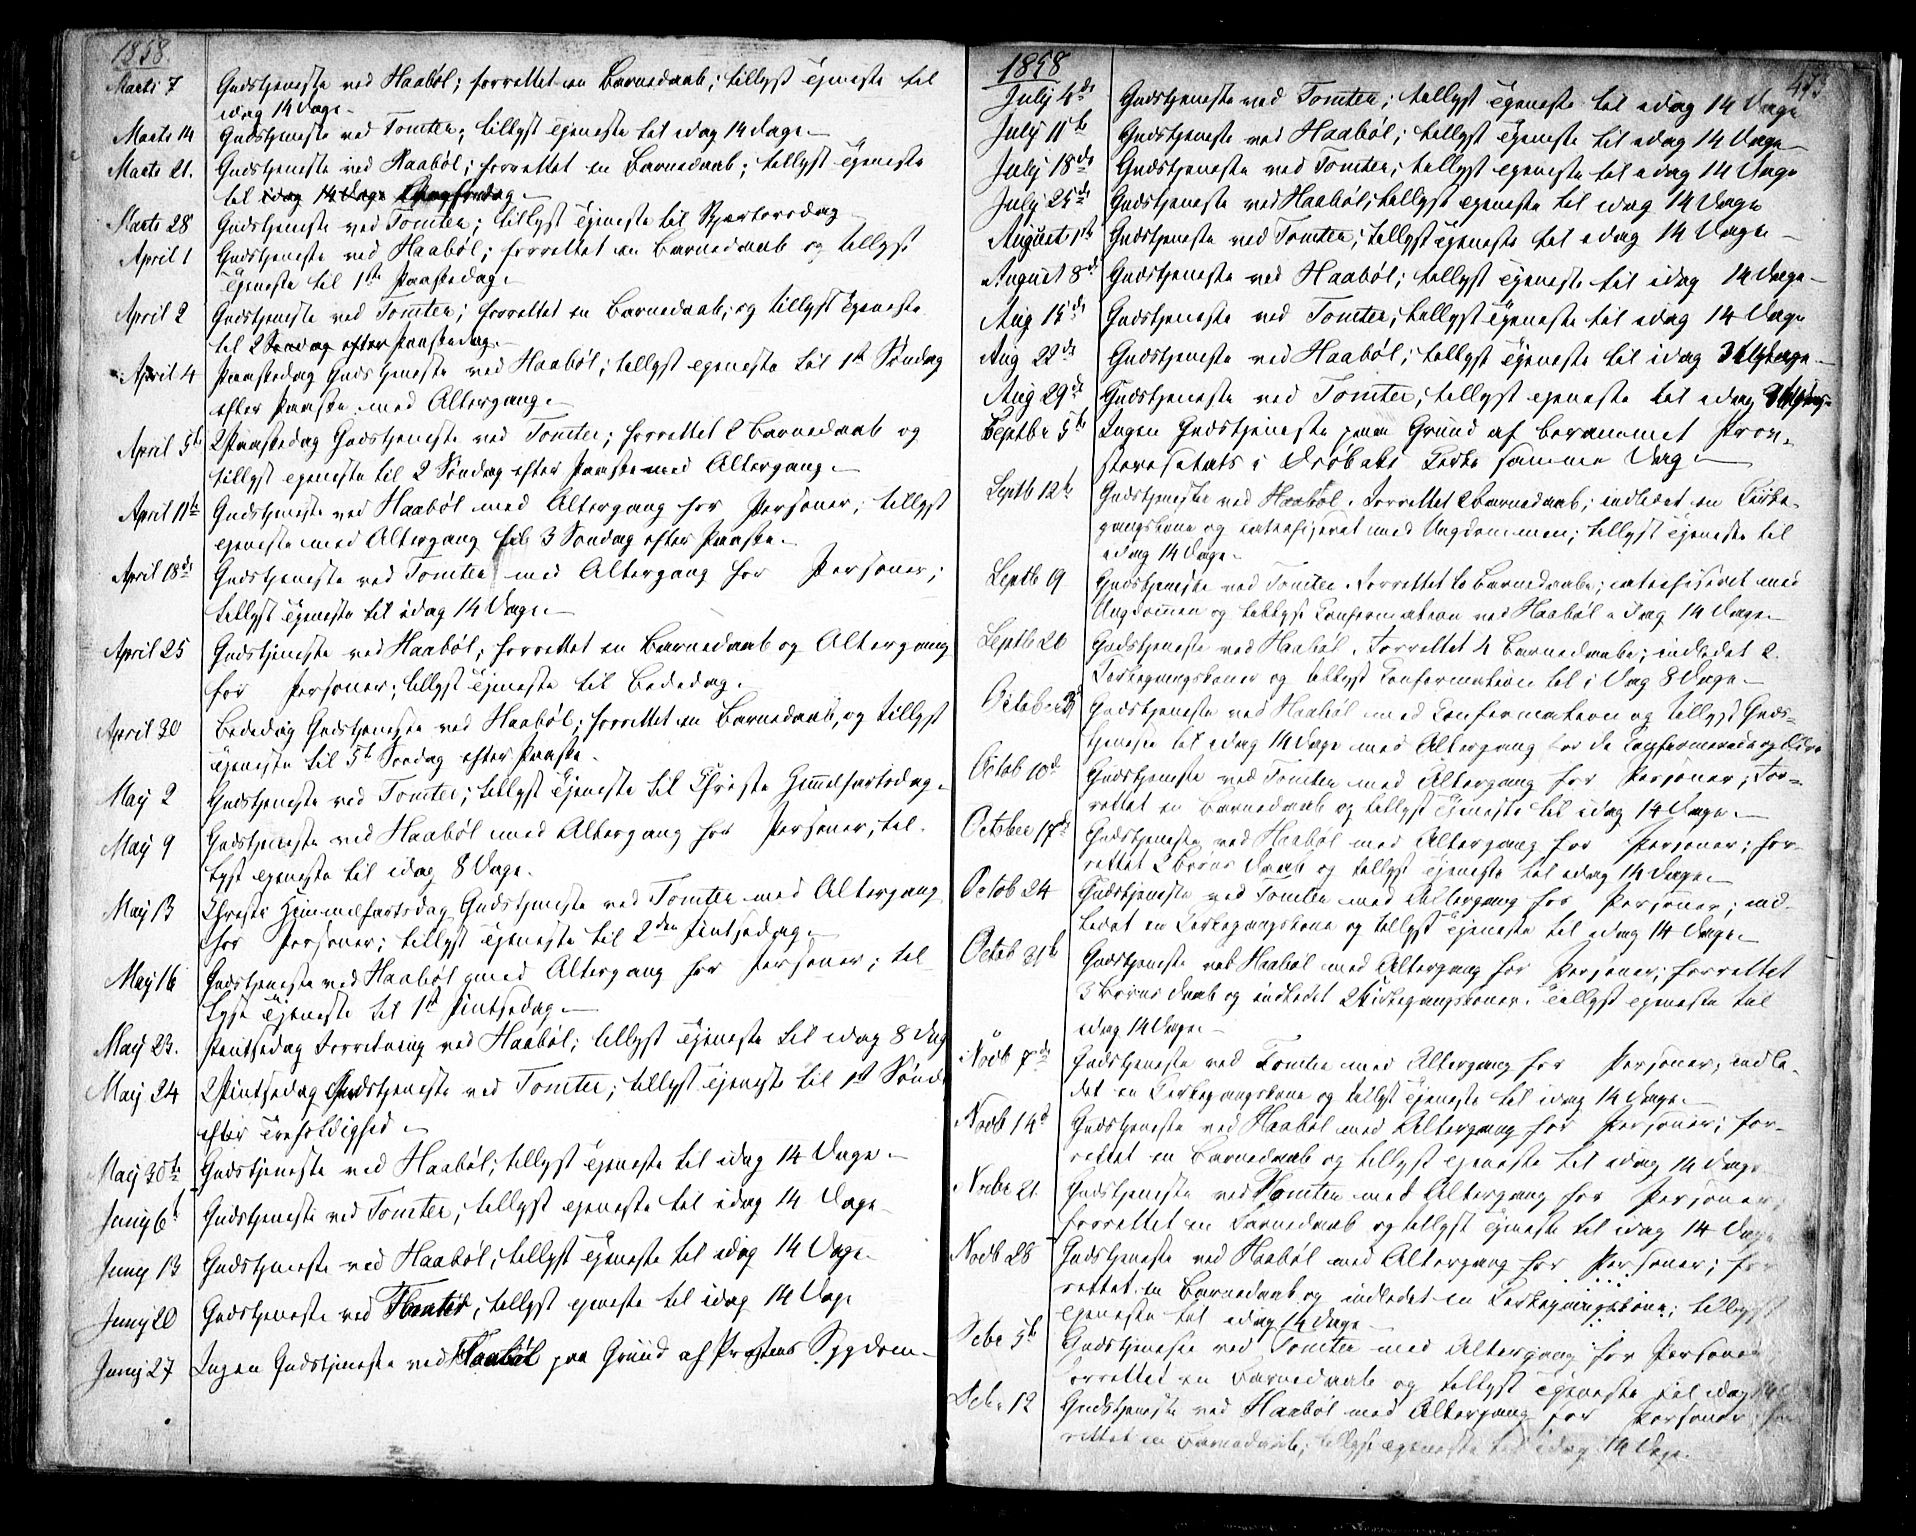 1858.
Marts 7 Gudstjeneste ved Haabøl; forrettet en Barnedaab; tillyst Tjeneste til
idag 14 Dage.
Marts 14 Gudstjeneste ved Tomter; tillyst Tjeneste til idag 14 Dage.
Marts 21. Gudstjeneste ved Haabøl; forrettet en Barnedaab; tillyst Tjeneste
til idag 14 Dage
Marts 28 Gudstjeneste ved Tomter; tillyst Tjeneste til Skjærtorsdag
April 1 Gudstjeneste ved Haabøl; forrettet en Barnedaab og tillyst
Tjeneste til 1ste Paaskedag.
April 2 Gudstjeneste ved Tomter; forrettet en Barnedaab; og tillyst Tjeneste
til 2 Søndag efter Paaskedag.
April 4 Paaskedag Gudstjeneste ved Haabøl; tillyst Tjeneste til 1st Søndag
efter Paaske med Altergang.
April 5te 2 Paaskedag Gudstjeneste ved Tomter; forrettet 2 Barnedaab og
tillyst Tjeneste til 2 Søndag efter Paaske med Altergang.
April 11te Gudstjeneste ved Haabøl med Altergang for Personer; tillyst
Tjeneste med Altergang til 3 Søndag efter Paaske.
April 18de Gudstjeneste ved Tomter med Altergang for Personer;
tillyst Tjeneste til idag 14 Dage.
April 25 Gudstjeneste ved Haabøl; forrettet en Barnedaab og Altergang
for Personer; tillyst Tjeneste til Bededag.
April 30 Bededag Gudstjeneste ved Haabøl; forrettet en Barnedaab, og tillyst
Tjeneste til 5te Søndag efter Paaske.
Maj 2 Gudstjeneste ved Tomter; tillyst Tjeneste til Christi Himmelfartsdag.
Maj 9 Gudstjeneste ved Haabøl med Altergang for Personer; til-
lyst Tjeneste til idag 8 Dage.
Maj 13 Christi Himmelfartsdag Gudstjeneste ved Tomter med Altergang
for Personer; tillyst Tjeneste til 2den Pintsedag.
Maj 16 Gudstjeneste ved Haabøl med Altergang for Personer; til-
lyst Tjeneste til 1st Pintsedag.
Maij 23. Pintsedag Forretning ved Haabøl; tillyst Tjeneste til idag 8 Dag
Maij 24 2 Pintsedag Gudstjeneste ved Tomter; tillyst Tjeneste til 1st Sønd
efter Trefoldighed
Maij 30te Gudstjeneste ved Haabøl; tillyst Tjeneste til idag 14 Dage.
Junij 6t Gudstjeneste ved Tomter; tillyst Tjeneste til idag 14 Dage.
Junij 13 Gudstjeneste ved Haabøl; tillyst Tjeneste til idag 14 Dage.
Junij 20 Gudstjeneste ved Tomter; tillyst Tjeneste til idag 14 Dage
Junij 27 Ingen Gudstjeneste ved Haabøl paa Grund af Præstens Sygdom.
1858 473
July 4de Gudstjeneste ved Tomter; tillyst Tjeneste til idag 14 Dage
July 11te Gudstjeneste ved Haabøl; tillyst Tjeneste til idag 14 Dage.
July 18de Gudstjeneste ved Tomter; tillyst Tjeneste til idag 14 Dage
July 25de Gudstjeneste ved Haabøl; tillyst Tjeneste til idag 14 Dage
August 1ste Gudstjeneste ved Tomter; tillyst Tjeneste til idag 14 Dage.
August 8de Gudstjeneste ved Haabøl; tillyst Tjeneste til idag 14 Dage.
Aug 15de Gudstjeneste ved Tomter; tillyst Tjeneste til idag 14 Dage
Aug 22de Gudstjeneste ved Haabøl; tillyst Tjeneste til idag 3 Uger
Aug 29de Gudstjeneste ved Tomter; tillyst Tjeneste til idag 3 Uger
Septbr 5te Ingen Gudstjeneste paa Grund af berammet Prov-
stevisitats i Drøbaks Kirke samme Dag.
Septb 12te Gudstjeneste ved Haabøl. Forrettet 2 Barnedaab; indledet en Kirke-
gangskone og catechiseret med Ungdommen; tillyst Tjeneste til
idag 14 Dage.
Septb 19 Gudstjeneste ved Tomter. Forrettet to Barnedaabe; catechiseret med
Ungdommen og tillyst Confirmation ved Haabøl i Dag 14 Dage.
Septb 26 Gudstjeneste ved Haabøl. Forrettet 4 Barnedaabe; indledet 2
Kirkegangskoner og tillyst Confirmation til i Dag 8 Dage.
October 3 Gudstjeneste ved Haabøl med Confirmation og tillyst Guds-
tjeneste til idag 14 Dage med Altergang for de Confirmerede og
Octob 10de Gudstjeneste ved Tomter med Altergang for Personer; for-
rettet en Barnedaab og tillyst Tjeneste til idag 14 Dage.
October 17de Gudstjeneste ved Haabøl med Altergang for Personer; for-
rettet 2 Børns Daab og tillyst Tjeneste til idag 14 Dage.
Octob 24 Gudstjeneste ved Tomter med Altergang for Personer; ind-
ledet en Kirkegangskone og tillyst Tjeneste til idag 14 Dage.
Octob 31te Gudstjeneste ved Haabøl med Altergang for Personer; forrettet
3 Børns Daab og indledet 2 Kirkegangskoner. Tillyst Tjeneste til
idag 14 Dage.
Novb 7de Gudstjeneste ved Tomter med Altergang for Personer; indle-
det en Kirkegangskone og tillyst Tjeneste til idag 14 Dage.
Novb 14d Gudstjeneste ved Haabøl med Altergang for Personer; for-
rettet en Barnedaab og tillyst Tjeneste til idag 14 Dage
Novbr 21. Gudstjeneste ved Tomter med Altergang for Personer;
forrettet en Barnedaab og tillyst Tjeneste til idag 14 Dage
Novb 28 Gudstjeneste ved Haabøl med Altergang for Personer; for
rettet en Barnedaab og indledet en Kirkegangskone; tillyst
Tjeneste til idag 14 Dage.
Debr 5te Gudstjeneste ved Tomter med Altergang for Personer
forrettet en Barnedaab og tillyst Tjeneste til idag 14
Debr 12 Gudstjeneste ved Haabøl med Altergang for Personer; for
rettet en Barnedaab; tillyst Tjeneste til idag 14 Dage.